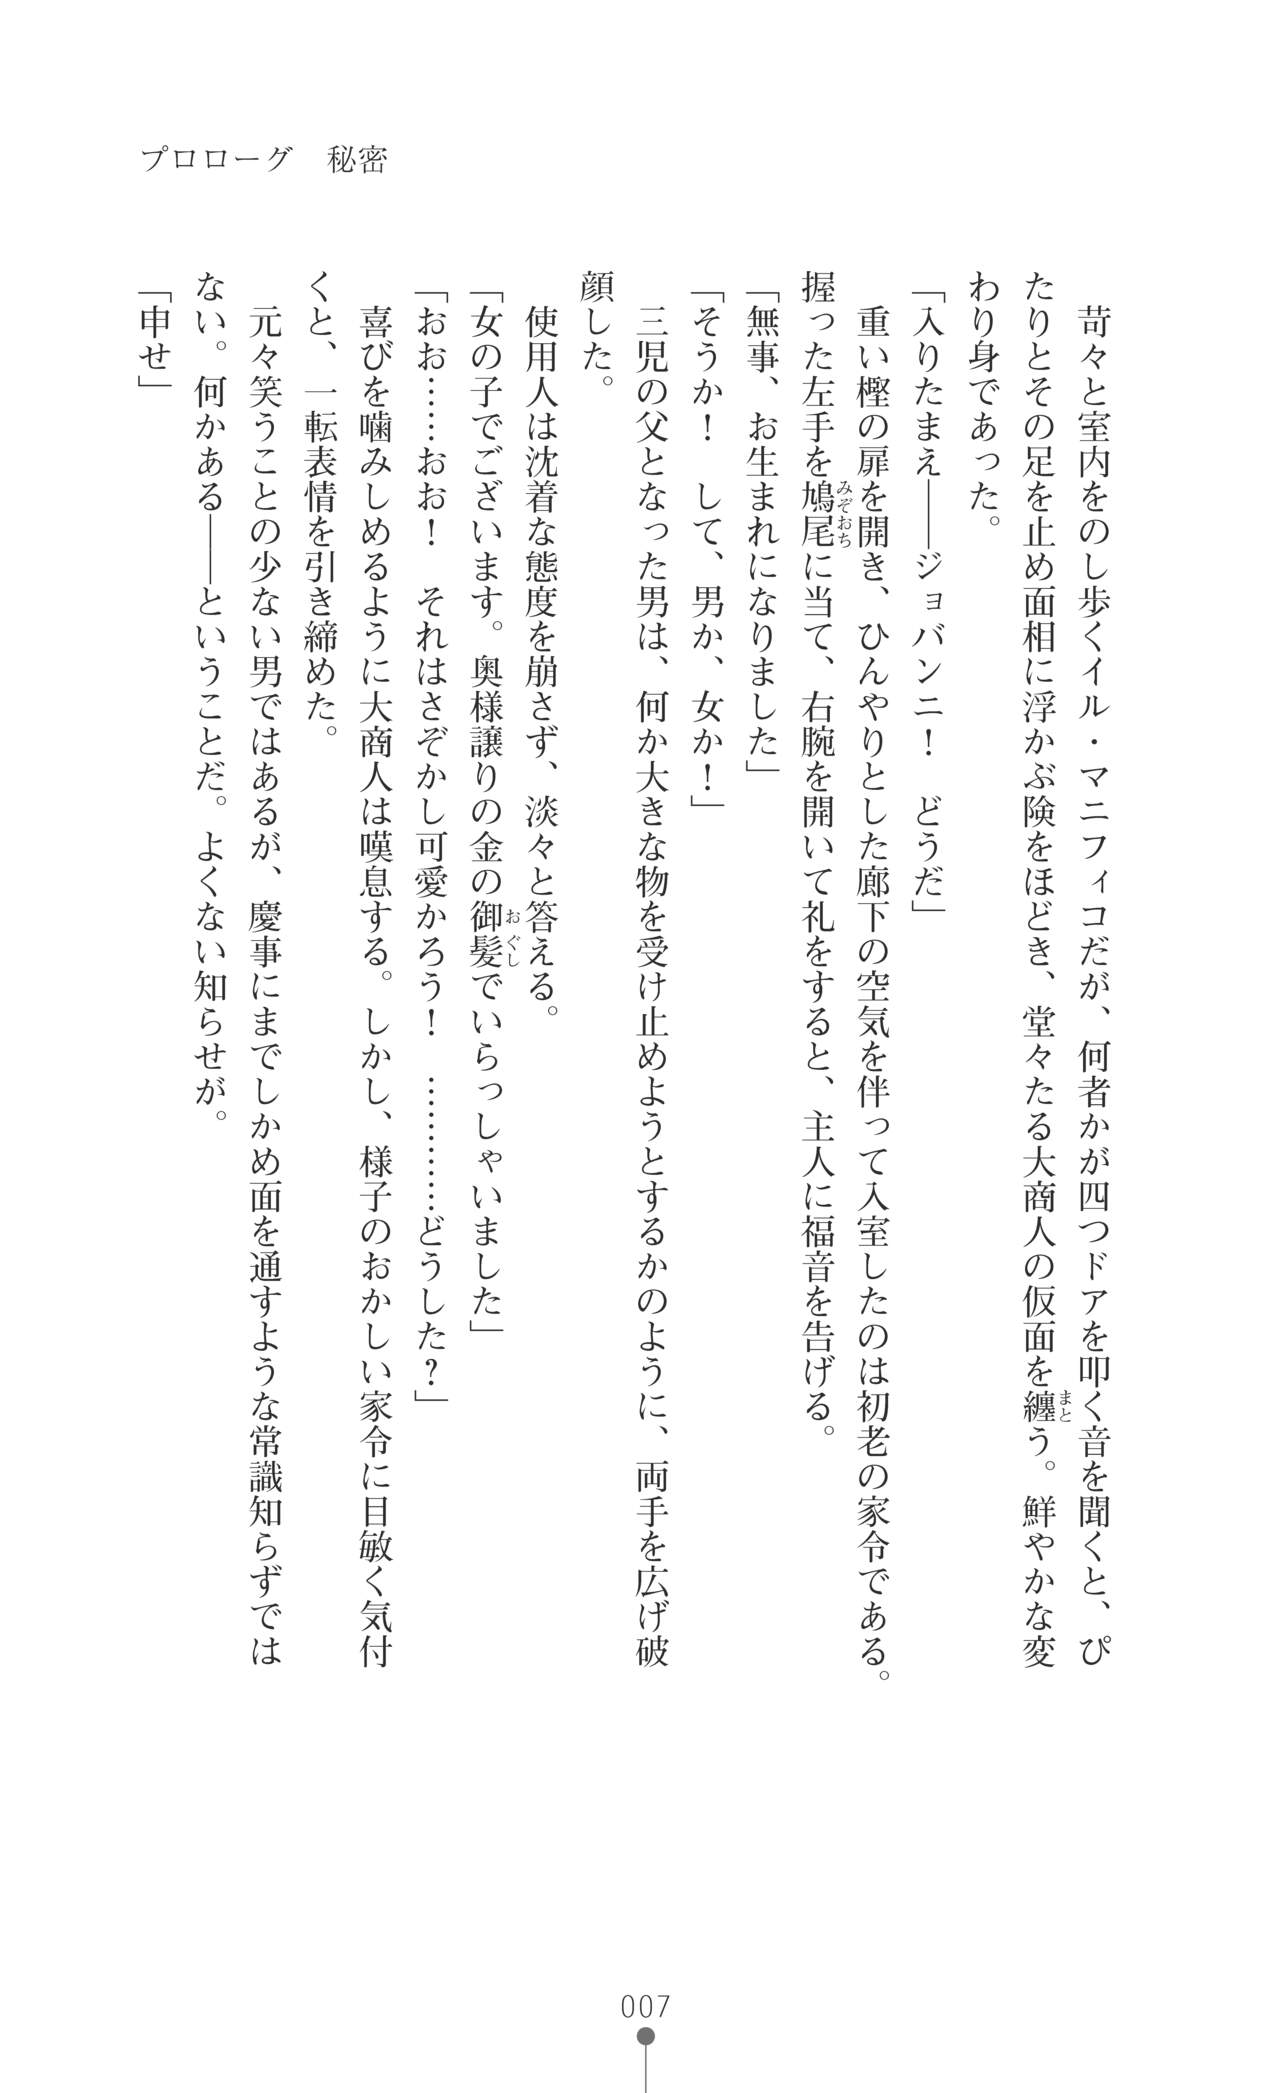 プロローグ　秘密
　苛々と室内をのし歩くイル・マニフィコだが、何者かが四つドアを叩く音を聞くと、ぴ
たりとその足を止め面相に浮かぶ険をほどき、堂々たる大商人の仮面を纏う。鮮やかな変
わり身であった。
「入りたまえ――ジョバンニ！　どうだ」
　重い樫の扉を開き、ひんやりとした廊下の空気を伴って入室したのは初老の家令である。
握った左手を鳩尾に当て、右腕を開いて礼をすると、主人に福音を告げる。
「無事、お生まれになりました」
「そうか！　して、男か、女か！」
　三児の父となった男は、何か大きな物を受け止めようとするかのように、両手を広げ破
顔した。
　使用人は沈着な態度を崩さず、淡々と答える。
「女の子でございます。奥様譲りの金の御髪でいらっしゃいました」
「おお……おお！　それはさぞかし可愛かろう！　…………どうした？」
　喜びを噛みしめるように大商人は嘆息する。しかし、様子のおかしい家令に目敏く気付
くと、一転表情を引き締めた。
　元々笑うことの少ない男ではあるが、慶事にまでしかめ面を通すような常識知らずでは
ない。何かある――ということだ。よくない知らせが。
「申せ」
みぞおち
おぐし
まと
007